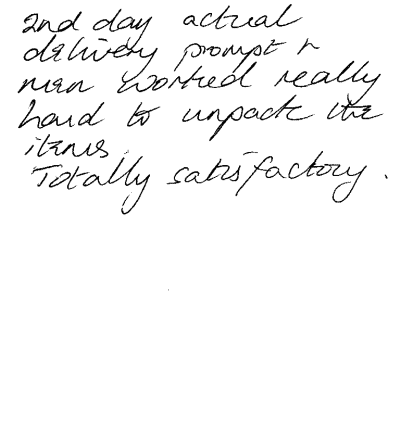 2nd day actual
delivery prompt &
men worked really
hard to unpack the
items.
Totally satisfactory.